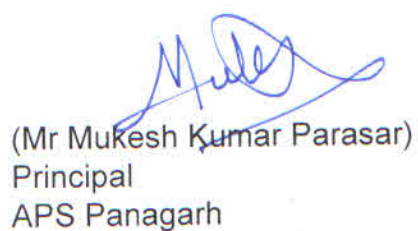 (Mr Mukesh Kumar Parasar)
Principal
APS Panagarh